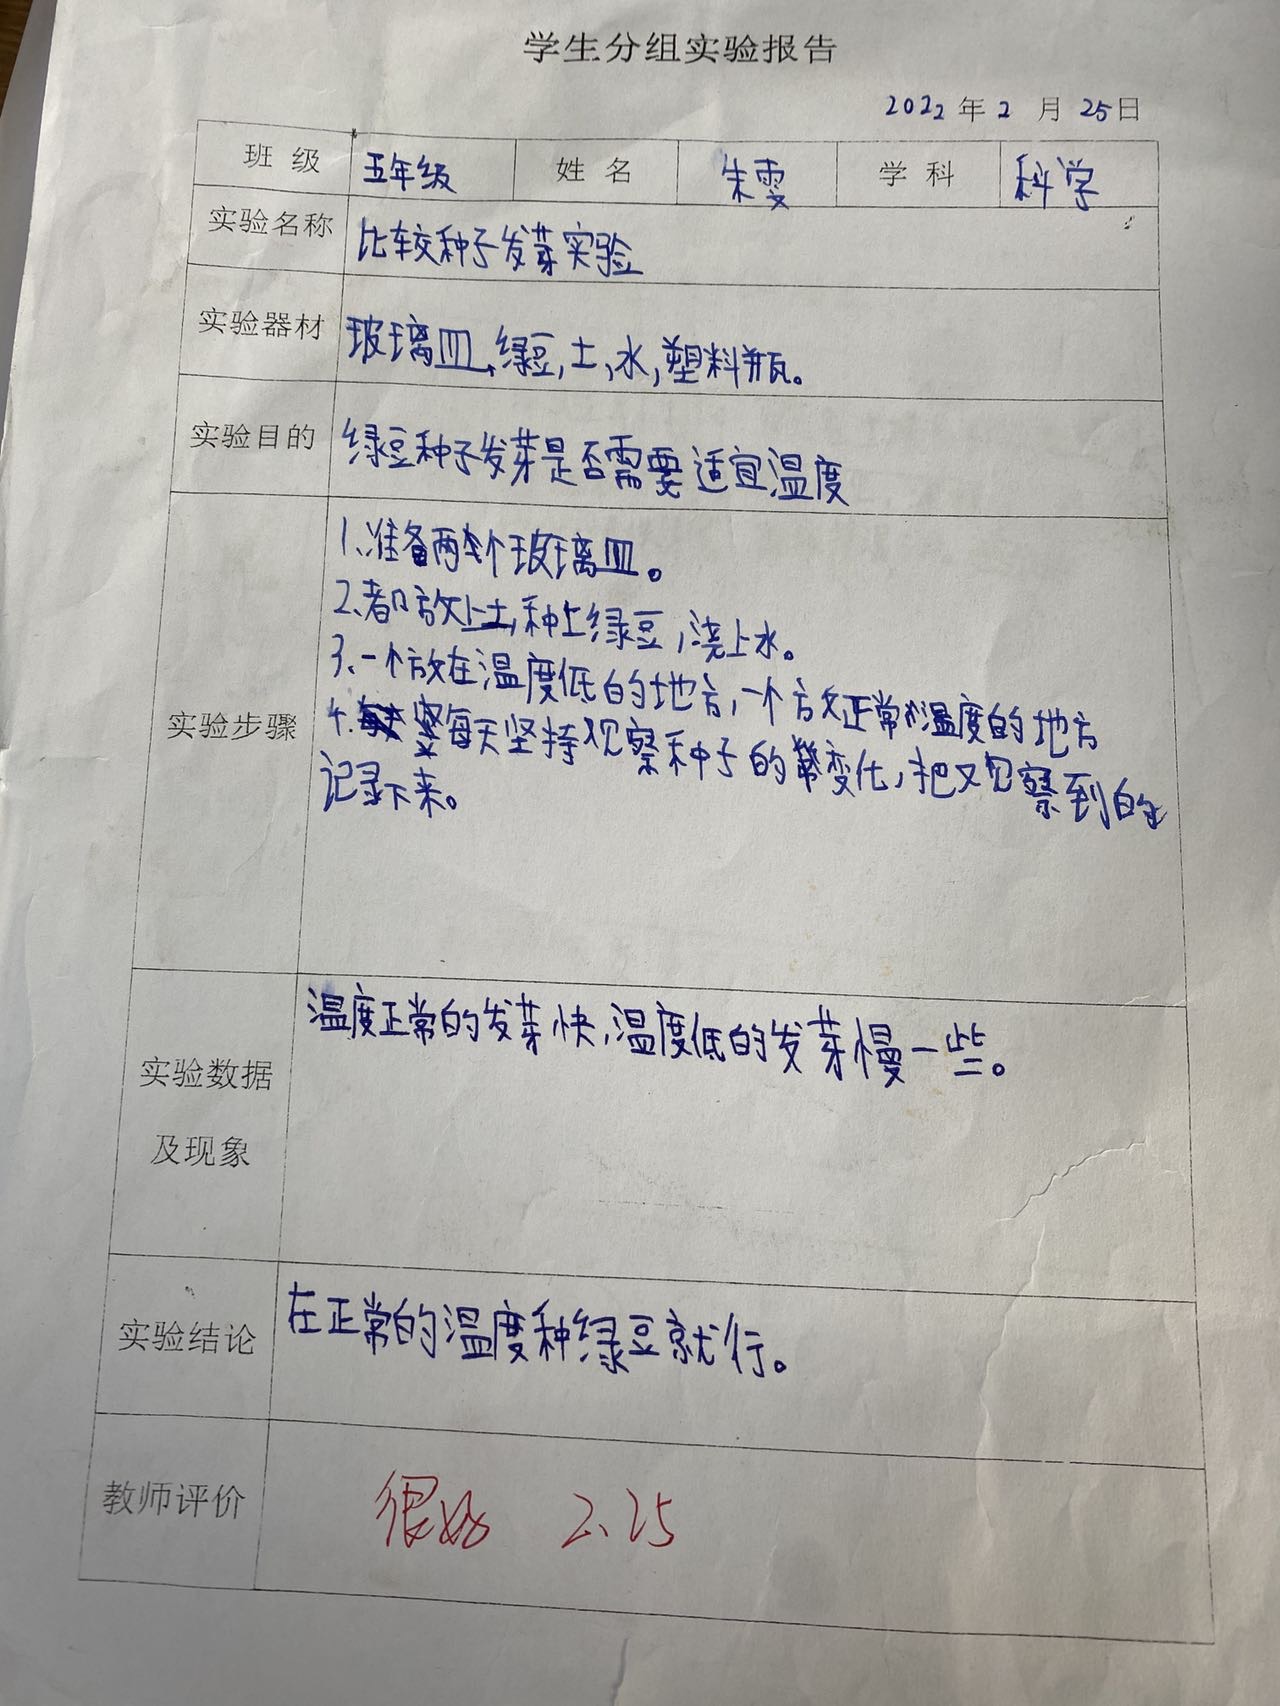 学生分组实验报告
2022年2月25日
班级 五年级 姓名 朱雯 学科 科学
实验名称 比较种子发芽实验
实验器材 玻璃皿,绿豆,土,水,塑料瓶。
实验目的 绿豆种子发芽是否需要适宜温度
实验步骤
1.准备两个玻璃皿。
2.都放上土,种上绿豆,浇上水。
3.一个放在温度低的地方,一个放正常温度的地方
4.每天坚持观察种子的变化,把观察到的
记录下来。
实验数据
及现象
温度正常的发芽快,温度低的发芽慢一些。
实验结论 在正常的温度种绿豆就行。
教师评价 很好 2.25